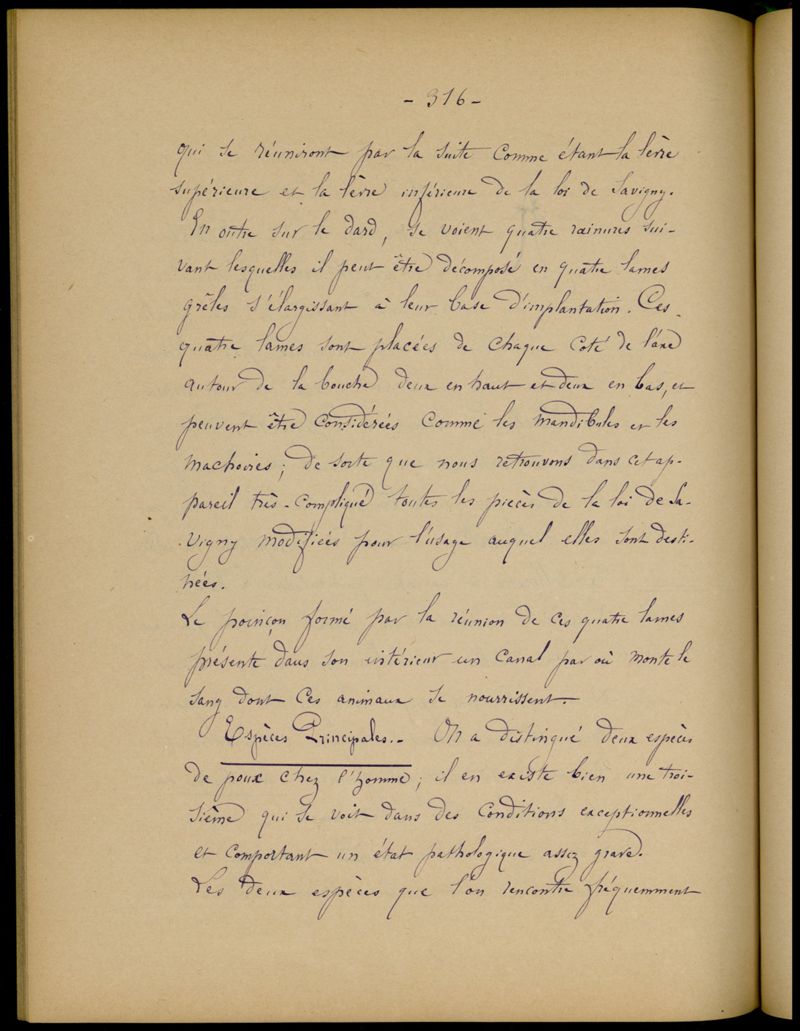 - 316 -
qui se réuniront par la suite comme étant la lèvre
supérieure et la lèvre inférieure de la loi de Savigny.
En outre sur le dard, se voient quatre rainures sui-
vant lesquelles il peut être décomposé en quatre lames
grêles s'élargissant à leur base d'implantation. Ces
quatre lames sont placées de chaque coté de l'axe
autour de la bouche deux en haut et deux en bas, et
peuvent être considérées comme les mandibules et les
machoires; de sorte que nous retrouvons dans cet ap-
pareil très-compliqué toutes les pièces de la loi de Sa-
vigny modifiées pour l'usage auquel elles sont desti-
nées.
Le poinçon formé par la réunion de ces quatre lames
présente dans son intérieur un canal par où monte le
sang dont ces animaux se nourrissent.
Espèces Principales.- On a distingué deux espèces
de poux chez l'homme; il en existe bien une troi-
sième qui se voit dans des conditions exceptionnelles
et comportant un état pathologique assez grave.
Les deux espèces que l'on rencontre fréquemment